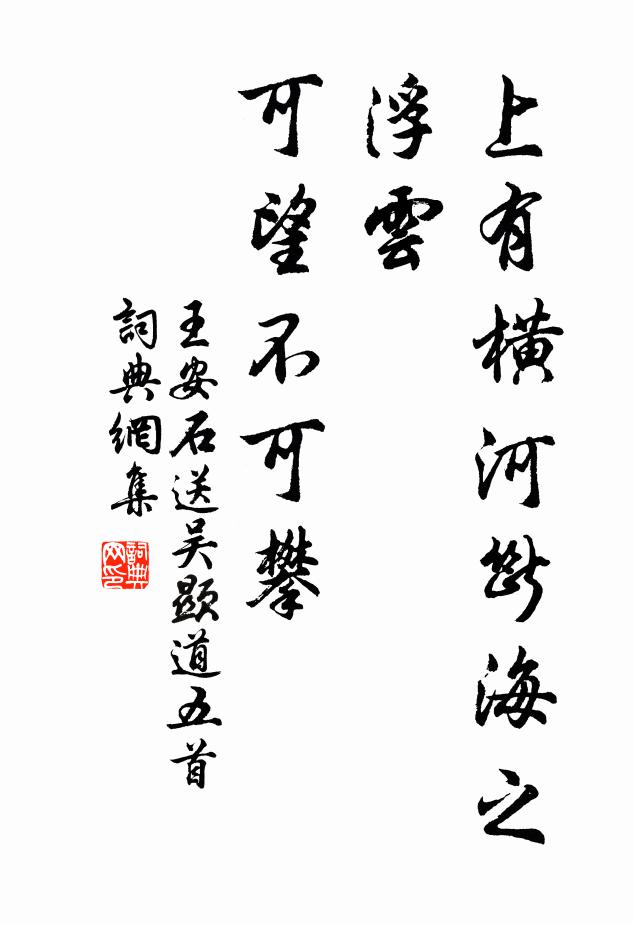 上有橫河斷海之
浮雲
可望不可攀
王安石送吴顯道五首
詞典網集
詞典
网印